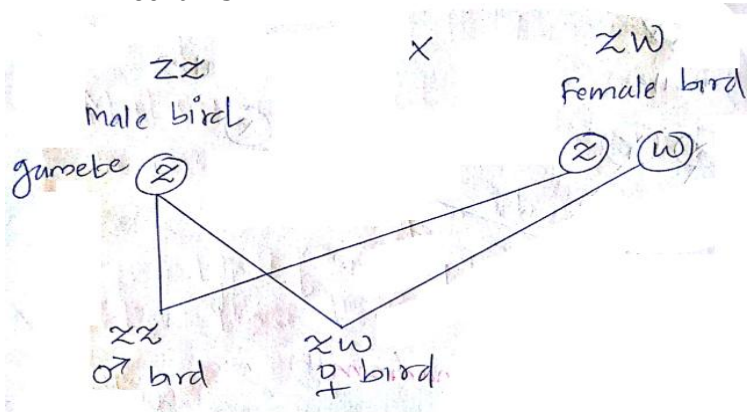 ZZ × ZW
Male bird Female bird
gamete Z Z W
ZZ ZW
♂ bird ♀ bird